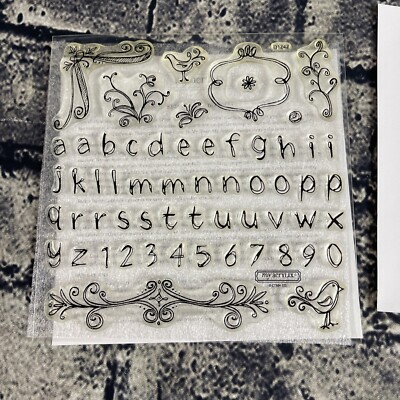 D1242
a a b c d e e f g h i i
j k l l m m n n o o p p
q r r s s t t u u v w x
y z 1 2 3 4 5 6 7 8 9 0
my acrylix